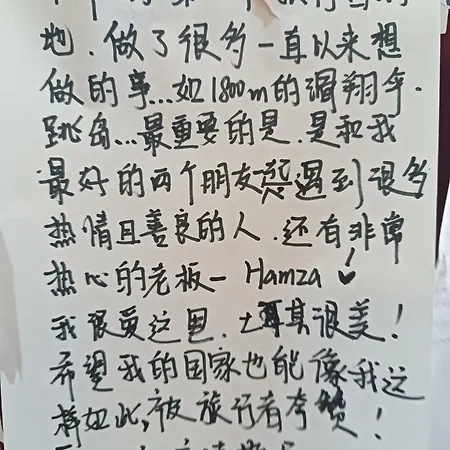 地.做了很多一直以来想
做的事...如1800m的滑翔伞.
跳岛...最重要的是.是和我
最好的两个朋友一起遇到很多
热情且善良的人.还有非常
热心的老板－Hamza
我很爱这里.土耳其很美!
希望我的国家也能像我这
样如此,被旅行者夸赞!